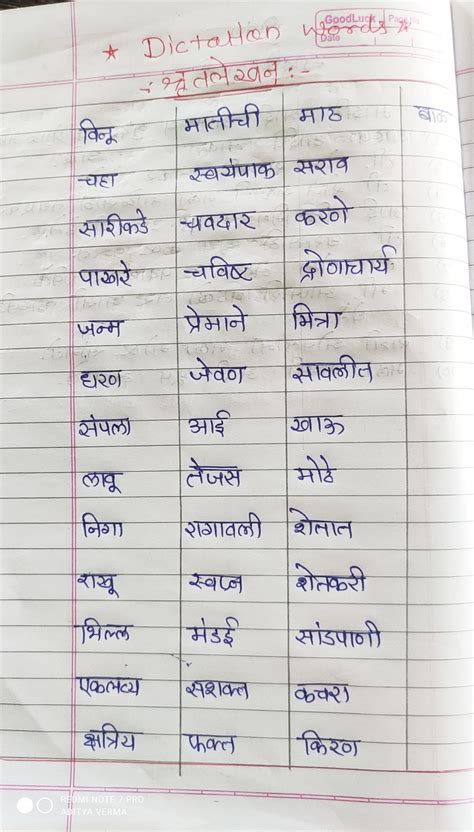 GoodLuck Page No.
Date
★ Dictation words ★
-: श्रुतलेखन :-
विनू मातीची माठ बाक
चहा स्वयंपाक सराव
सारीकडे चवदार करणे
पाखरे चविष्ट द्रोणाचार्य
जन्म प्रेमाने मित्रा
धरण जेवण सावलीत
संपला आई खाऊ
लावू तेजस मोठे
निगा रागावली शेतात
राखू स्वप्न शेतकरी
भिल्ल मंडई सांडपाणी
एकलव्य सशक्त कचरा
क्षत्रिय फक्त किरण
REDMI NOTE 7 PRO
ADITYA VERMA